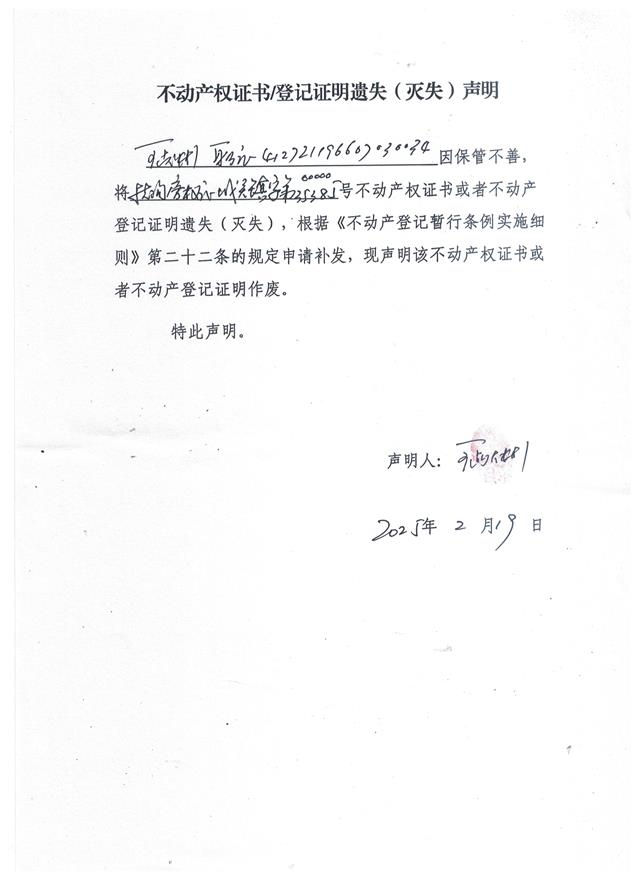 不动产权证书/登记证明遗失（灭失）声明
412721196607030034因保管不善，
将扶沟房权证城关镇字第0000035385号不动产权证书或者不动产
登记证明遗失（灭失），根据《不动产登记暂行条例实施细
则》第二十二条的规定申请补发，现声明该不动产权证书或
者不动产登记证明作废。
特此声明。
声明人：
2025年2月19日